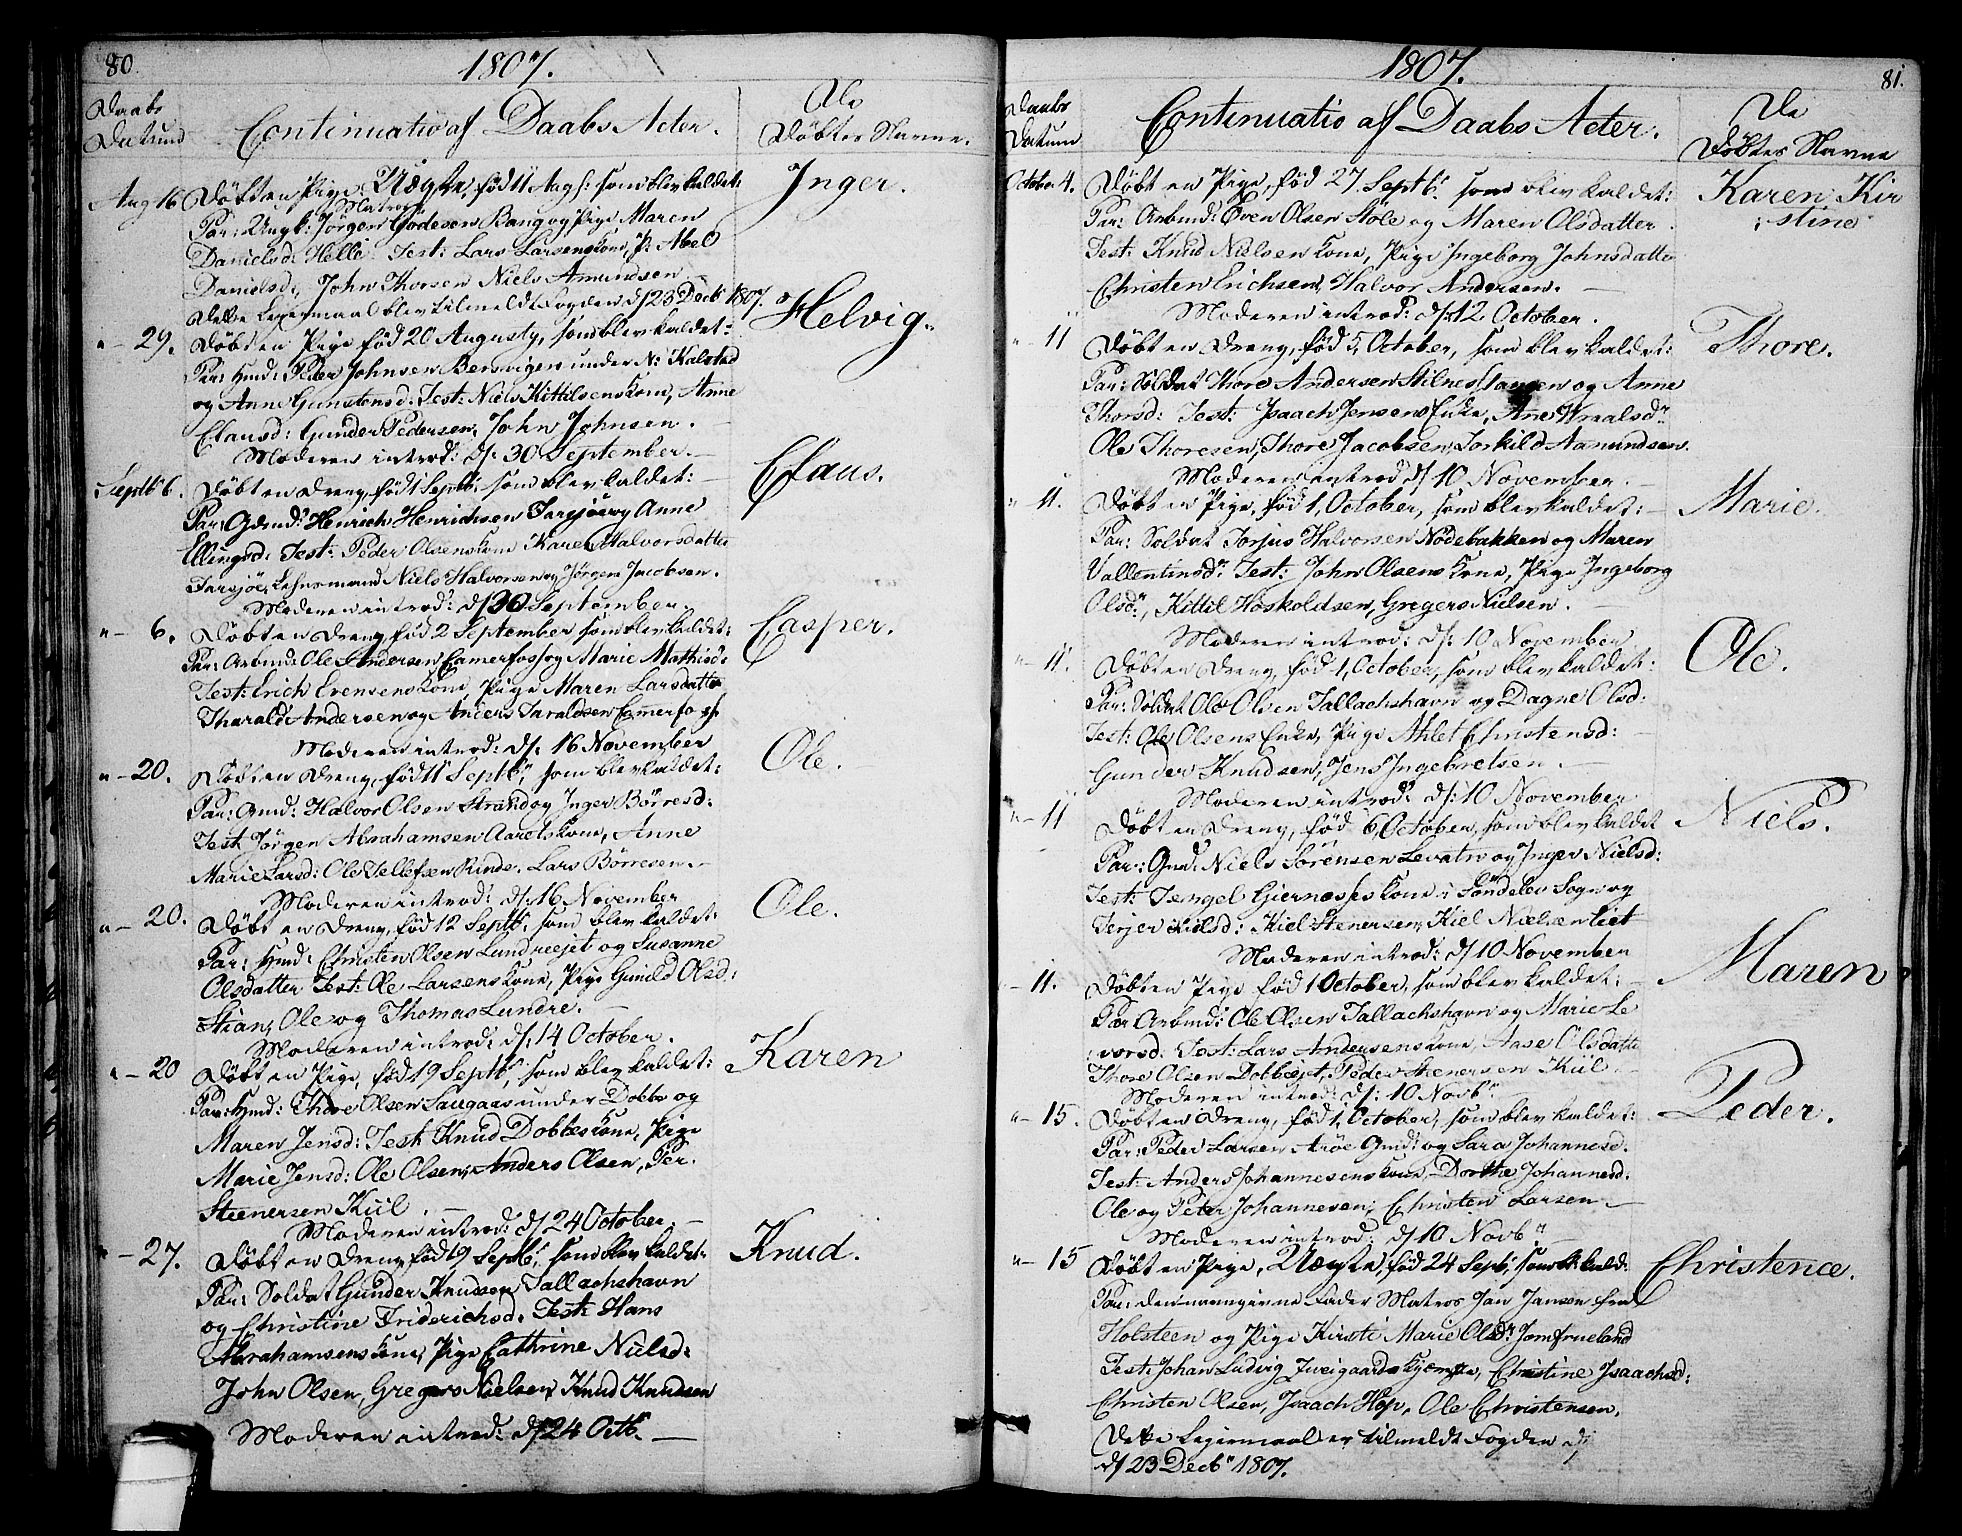 80.
1807.
Daabs
Datum
Continuatio af Daabs Acter.
De
Døbtes Navne.
Aug 16
Døbt en Pige, Uægte, fød 11 Aug: som blev kaldet:
Inger.
Matros
Par: Ungk: Jørgen Godesen Bang og Pige Maren
Danielsd: Helle. Test: Lars Larsens Kone, P: Abel
Danielsd:, John Thorsen Niels Amundsen.
Dette Leyermaal blev tilmeldt Fogden d/23 Decbr 1807.
" - 29.
Døbt en Pige fød 20 Augusty, som blev kaldet:
Helvig.
Par: Hmd: Peder Johnsen Bersvigen under N: Kalstad
og Anne Gunstensd: Test: Niels Kittilsens Kone, Anne
Clausd: Gunder Pedersen, John Johnsen.
Moderen introd: d/: 30 September.
Septbr 6.
Døbt en Dreng, fød 1 Septbr, som blev kaldet:
Claus.
Par: Gdmd: Henrich Henrichsen Farsjøe og Anne
Ellingsd: Test: Peder Olsens Kone Karen Halvorsdatter
Farsjøe, Lehnsmand Niels Halvorsen og Jørgen Jacobsen.
Moderen introd: d/30 September.
" - 6.
Døbt en Dreng, fød 2 September som blev kaldet:
Casper.
Par: Arbmd: Ole Andersen Camerfos og Marie Mathisd:
Test: Erich Evensens Kone, Pige Maren Larsdatter
Tharald Andersen og Anders Taraldsen Camerfos
Moderen introd: d/: 16 November
" - 20.
Døbt en Dreng, fød 11 Septbr, som blev kaldet:
Ole.
Par: Gmd: Halvor Olsen Strand og Inger Børresd:
Test: Jørgen Abrahamsen Aarøes Kone, Anne
Marie Larsd: Ole Tellefsen Rinde, Lars Børresen.
Moderen introd: d/: 16 November
" - 20.
Døbt en Dreng, fød 12 Septbr, som blev kaldet:
Ole.
Par: Hmd: Christen Olsen Lundreejet og Susanne
Olsdatter Test: Ole Larsens Kone, Pige Gunild Olsd:
Stian, Ole og Thomas Lundre.
Moderen introd: d/: 14 October.
" - 20
Døbt en Pige, fød 19 Septbr, som blev kaldet:
Karen
Par: Hmd: Thore Olsen Saugaas under Dobbe og
Maren Jensd: Test: Knud Dobbes Kone, Pige
Marie Jensd: Ole Olsen, Anders Olsen, Per.
Steenersen Kiil.
Moderen introd: d/24 October.
" - 27.
Døbt en Dreng, fød 19 Septbr, som blev kaldet:
Knud.
Par: Soldat Gunder Knudsen Tallachshavn
og Christine Friderichsd: Test: Hans
Abrahamsens Kone, Pige Cathrine Nielsd:
John Olsen, Gregers Nielsen, Knud Knudsen
Moderen introd: d/24 Octb.
81.
1807.
Daabs
Datum
Continuatio af Daabs Acter.
De
Døbtes Navne
October 4.
Døbt en Pige, fød 27 Septbr, som blev kaldet:
Karen Kir
stine
Par: Arbmd: Even Olsen Støle og Maren Olsdatter.
Test: Knud Nielsens Kone, Pige Ingeborg Johnsdatter
Christen Erichsen, Halvor Andersen.
Moderen introd: d/: 12 October.
" - 11
Døbt en Dreng, fød 5 October, som blev kaldet:
Thore.
Par: Soldat Thore Andersen Stilnestangen og Anne
Thorsd: Test: Isaach Jensens Enke, Ane Wrealsdr
Ole Thoresen, Thore Jacobsen, Torkild Aamundsen.
Moderen introd d/: 10 November.
" - 11.
Døbt en Pige, fød 1 October, som blev kaldet:
Marie.
Par: Soldat Torjus Halvorsen Nødebakken og Maren
Vallentinsdr: Test: John Olsens Kone, Pige Ingeborg
Olsdr, Kittil Hoskoldsen, Gregers Nielsen.
Moderen introd: d/: 10 November
" - 11.
Døbt en Dreng, fød 1 October, som blev kaldet:
Ole.
Par: Soldat Ole Olsen Tallachshavn og Dagne Olsd:
Test: Ole Olsens Enke, Pige Ahlet Christensd:
Gunder Knudsen, Jens Ingebretsen.
Moderen introd: d/: 10 November
" - 11
Døbt en Dreng, fød 6 October, som blev kaldet
Niels.
Par: Gmd: Niels Sørensen Levatn og Inger Nielsd:
Test: Tengel Giernæss Kone i Søndelev Sogn og
Terjer Kielsd: Kiel Stenersen, Kiel Nielsen
Moderen introd: d/10 November
- 11.
Døbt en Pige fød 1 October, som blev kaldet:
Maren
Par: Arbmd: Ole Olsen Tallachshavn og Marie Le
vorsd: Test: Lars Andersens Kone, Aase Olsdatter
Thore Olsen Dobbeejet, Peder Steenersen Kiil.
Moderen introd: d/: 10 Novbr.
" - 15.
Døbt en Dreng, fød 1 October, som blev kaldet:
Peder.
Par: Peder Larsen Arøe Gmd: og Sara Johannesd:
Test: Anders Johannesens Kone, Dorthe Johannesd:
Ole og Peter Johannesen, Christen Larsen.
Moderen introd: d/10 Novbr.
" - 15
Døbt en Pige, Uægte, fød 24 Septbr, som bl: kald:
Christence.
Par: den naangivne Fader Matros Jan Jansen fra
Holsteen og Pige Kirsti Marie Olsdr Jomfrueland
Test: Johan Ludvig Zweigaards Kone, Christine Isaachsd:
Christen Olsen, Isaach Kop, Ole Christensen.
Dette Leyermaal er tilmeldt Fogden
d/ 23 Decbr 1807.